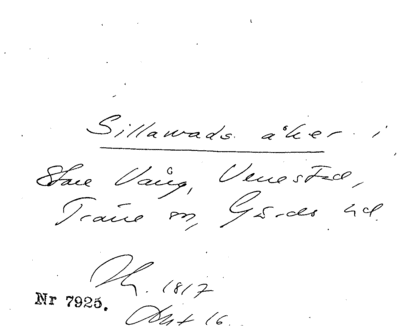 Sillawads åker i
Store Vång, Venestad,
Träne sn, Gärds hd.
Sk. 1817
Nr 7925.
Akt 16.